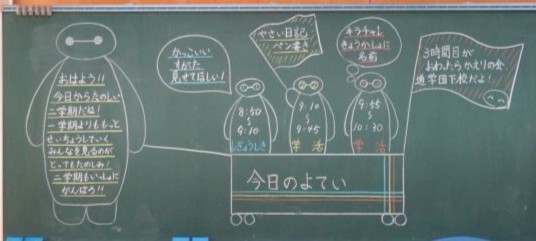 おはよう!!
今日からたのしい
二学期だね!
一学期よりももっと
せいちょうしていく
みんなを見るのが
とってもたのしみ!
二学期もいっしょに
がんばろ!!
かっこいい
すがた
見せてほしい!
やさい日記
ペン書き
キラチャレ
きょうかしょに
名前
3時間目が
おわったらかえりの会
通学団下校だよ!
8:50
〜
9:10
しぎょうしき
9:10
〜
9:45
学活
9:55
〜
10:30
学活
今日のよてい